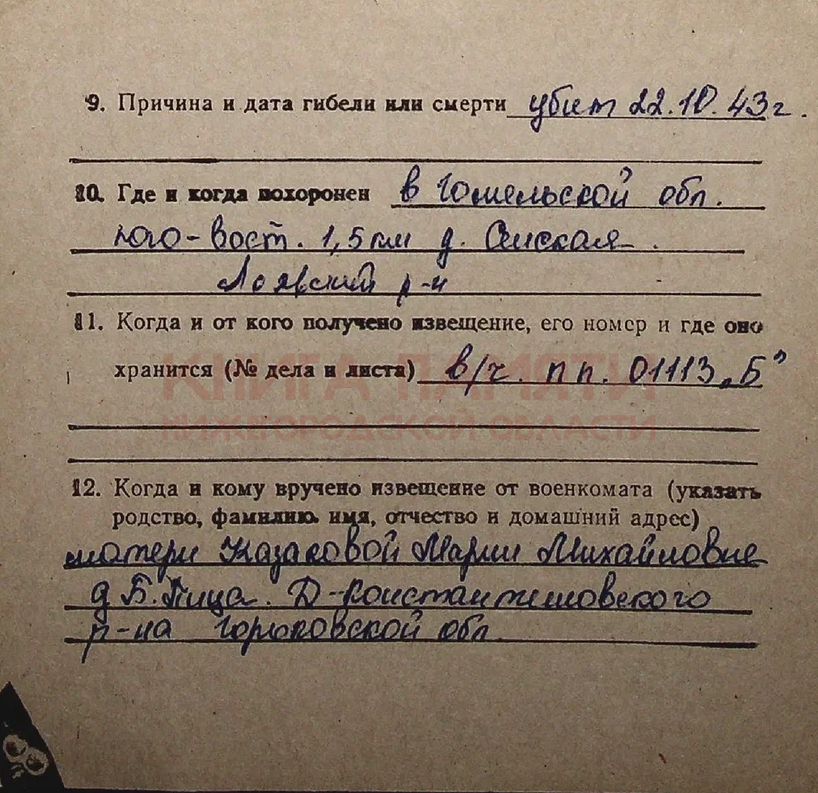 9. Причина и дата гибели или смерти убит 22.10.43г.
10. Где и когда похоронен в Гомельской обл.
юго-вост. 1,5 км д.
Лоявский р-н
11. Когда и от кого получено извещение, его номер и где оно
хранится (№ дела и листа) в/ч. п п. 01113 „Б"
КНИГА ПАМЯТИ
НИЖЕГОРОДСКОЙ ОБЛАСТИ
12. Когда и кому вручено извещение от военкомата (указать
родство, фамилию, имя, отчество и домашний адрес)
матери Казаковой Марии Михайловне
д Б. Пица. Д-Константиновского
р-на Горьковской обл.